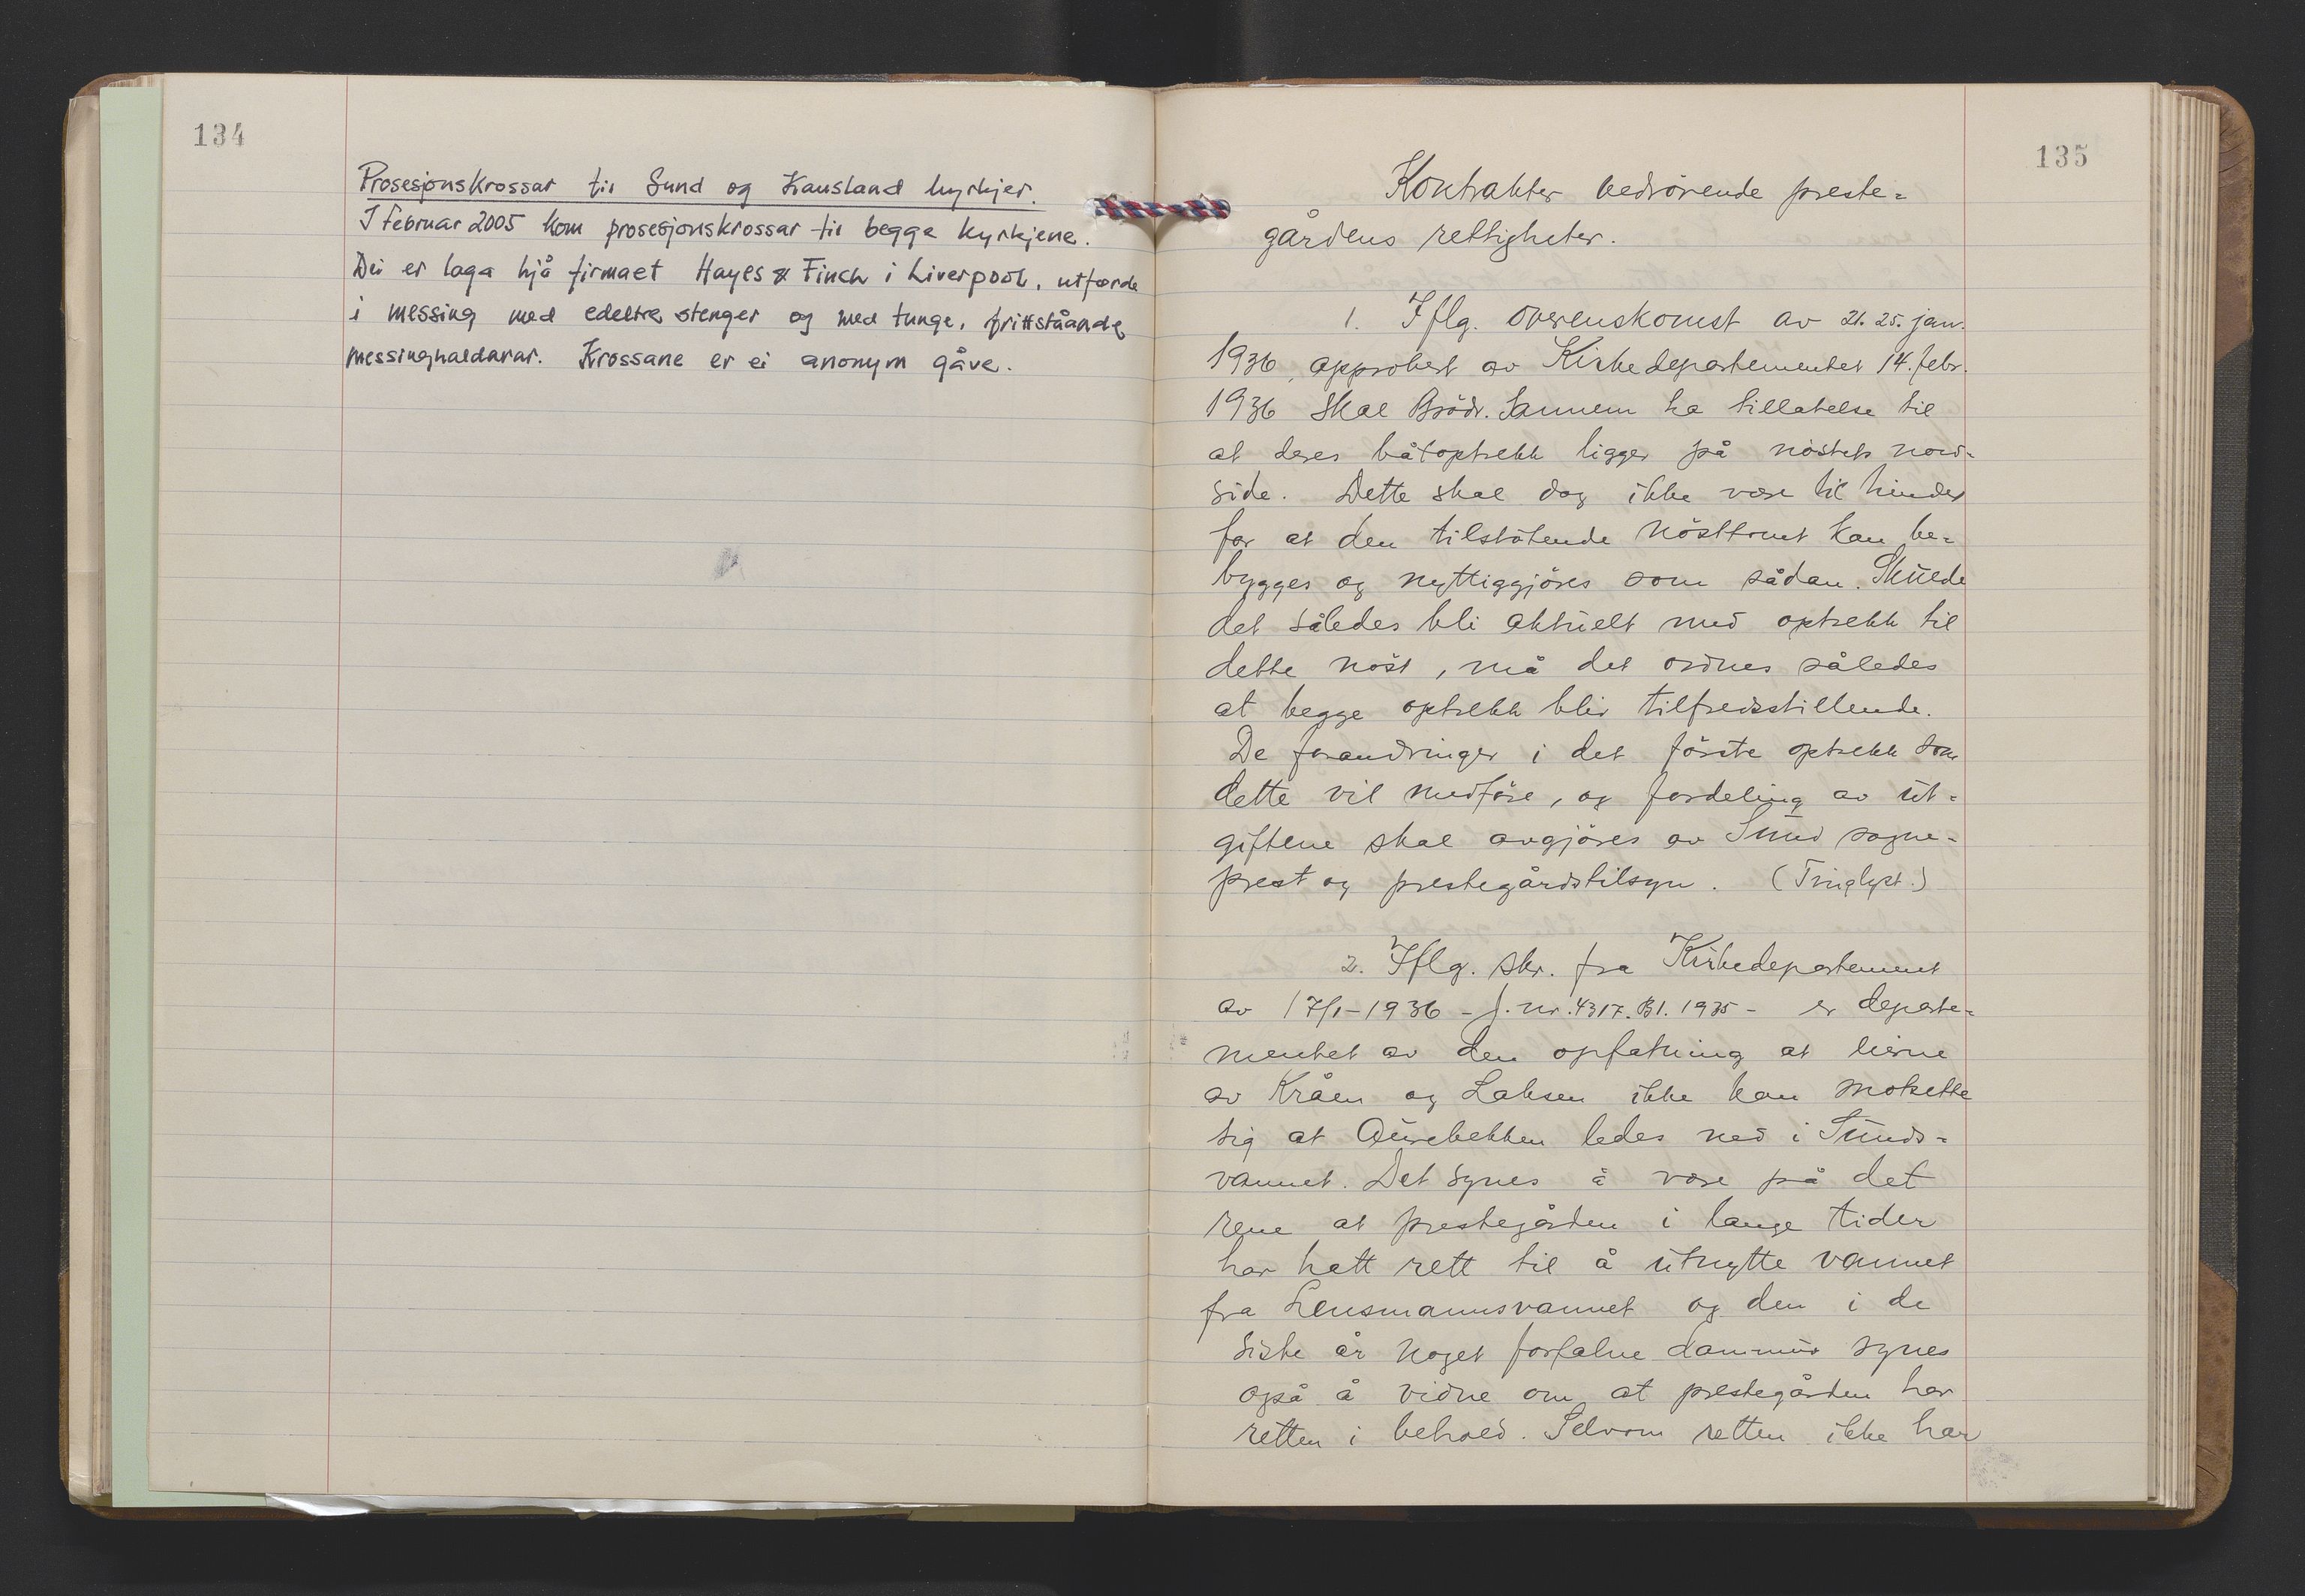 134
Prosesjonskrossar til Sund og Kausland kyrkjer.
I februar 2005 kom prosesjonskrossar til begge kyrkjene.
Dei er laga hjå firmaet Hayes & Finch i Liverpool, utførde
i messing med edeltre stenger og med tunge, frittståande
messinghaldarar. Krossane er ei anonym gåve.
135
Kontrakter vedrörende preste=
gårdens rettigheter.
1. Iflg. overenskomst av 21. 25. jan.
1936, approbert av Kirkedepartementet 14. febr.
1936 skal Brödr. Sannem ha tillatelse til
at deres båtoptrekk ligger på nöstets nord-
side. Dette skal dog ikke være til hinder
for at den tilstötende nösttomt kan be=
bygges og nyttiggjöres som sådan. Skulde
det således bli aktuelt med optrekk til
dette nöst, må det ordnes således
at begge optrekk blir tilfredsstillende.
De forandringer i det förste optrekk som
dette vil medföre, og fordeling av ut=
giftene skal avgjöres av Sund sogne=
prest og prestegårdstilsyn. (Tinglyst.)
2. Iflg. skr. fra Kirkedepartement
av 17/1-1936 - J. nr. 4317. B1. 1935 - er departe=
mentet av den opfatning at eierne
av Kråen og Laksen ikke kan motsette
sig at Aurebekken ledes ned i Sunds=
vannet. Det synes å være på det
rene at prestegården i lange tider
har hatt rett til å utnytte vannet
fra Lensmannsvannet og den i de
siste år noget forfalne dammur synes
også å vidne om at prestegården har
retten i behold. Selvom retten ikke har